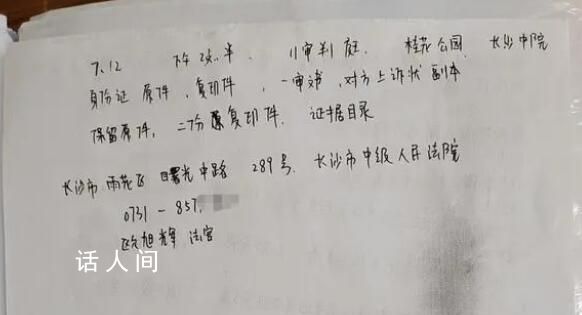 7.12 下午 2点半. 11审判庭. 桂花公园. 长沙中院
身份证 原件、复印件, 一审判, 对方上诉状副本
保留原件, 二份复印件. 证据目录
长沙市 雨花区 曙光中路 289号. 长沙市中级人民法院
0731-857.
欧旭辉 法官
话人间